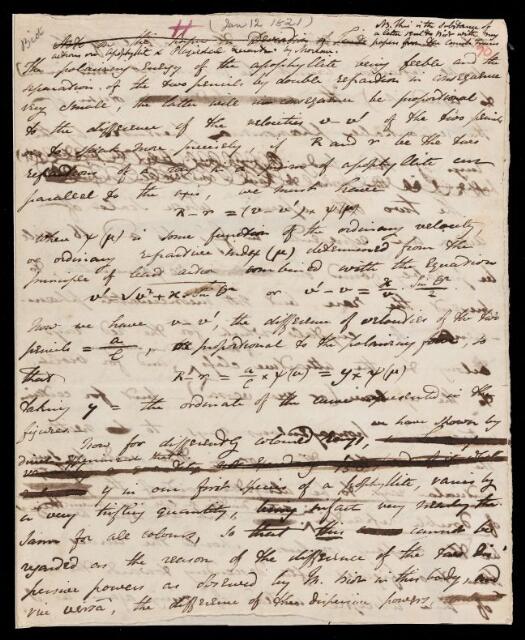 (Jan 12 1821)
N.B. this is the substance of
a letter sent to Biot with my
papers from the Camb. Trans.
Biot
The polarising energy of the apophyllite being feeble and the
separation of the two pencils by double refraction in consequence
very small, the latter will in consequence be proportional
to the difference of the velocities v – v' of the two pencils
to speak more precisely, if R and r be the two
refractions of a ray by a prism of apophyllite cut
parallel to the axis, we must have
R – r = (v – v') × ψ(μ)
where ψ(μ) is some function of the ordinary velocity,
or ordinary refractive index (μ) determined from the
principle of least action combined with the equations
v' = √v² + k · sin θ² or v' – v = k/v · sin θ²/2
Now we have v – v', the difference of velocities of the two
pencils = a/l, proportional to the polarising force, so
that R – r = a/l × ψ(μ) = y × ψ(μ)
taking y = the ordinate of the curve represented in the
figures
Now for differently colored rays, we have shown by
direct experiment that
y in our first species of apophyllite, varies by
a very trifling quantity, being in fact very nearly the
same for all colours, so that this cannot be
regarded as the reason of the difference of the two dis-
persive powers as observed by M. Biot in this body, and
vice versâ, the difference of the dispersive powers